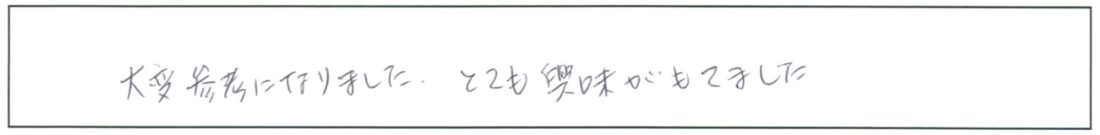 大変参考になりました. とても興味がもてました